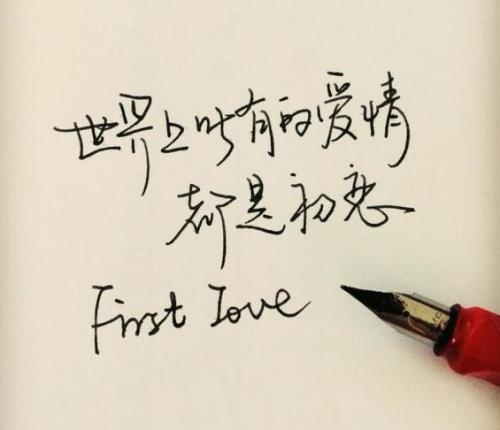 世界上所有的爱情
都是初恋
First Love